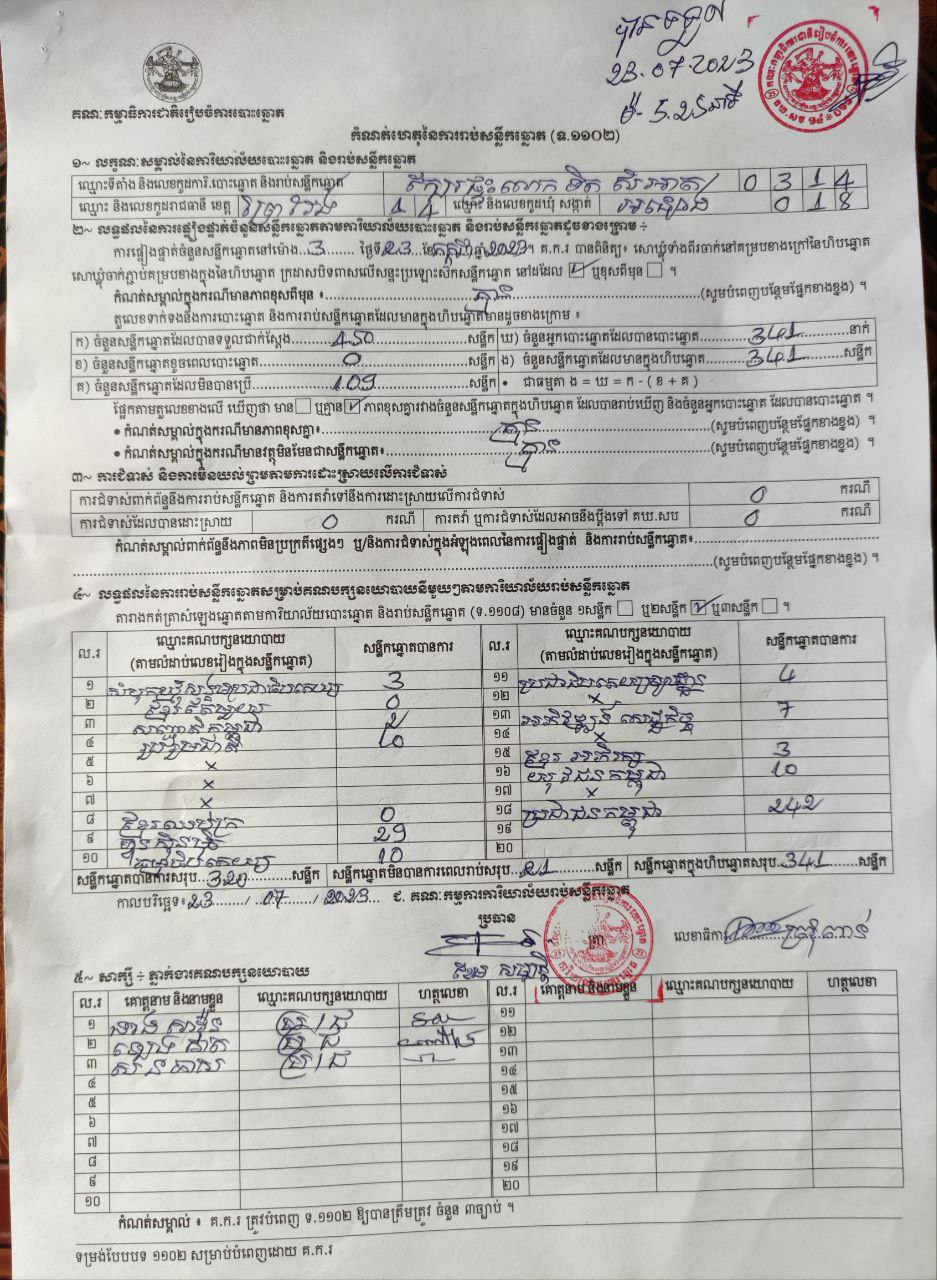 បានទទួល
23.07.2023
ម៉ 5.25 នាទី
គណៈកម្មាធិការជាតិរៀបចំការបោះឆ្នោត
កំណត់ហេតុនៃការរាប់សន្លឹកឆ្នោត (ទ.១១០២)
១~ លក្ខណៈសម្គាល់នៃការិយាល័យបោះឆ្នោត និងរាប់សន្លឹកឆ្នោត
ឈ្មោះទីតាំង និងលេខកូដការិ.បោះឆ្នោត និងរាប់សន្លឹកឆ្នោត 0 3 1 4
ឈ្មោះ និងលេខកូដរាជធានី ខេត្ត ព្រៃវែង 1 4 ឈ្មោះ និងលេខកូដឃុំ សង្កាត់ 0 1 8
២~ លទ្ធផលនៃការផ្ទៀងផ្ទាត់ចំនួនសន្លឹកឆ្នោតតាមការិយាល័យបោះឆ្នោត និងរាប់សន្លឹកឆ្នោតដូចខាងក្រោម ÷
ការផ្ទៀងផ្ទាត់ចំនួនសន្លឹកឆ្នោតនៅម៉ោង 3 ថ្ងៃទី 23 ខែ កក្កដា ឆ្នាំ 2023។ គ.ក.រ បានពិនិត្យ៖ សោឃ្លុំទាំងពីរចាក់នៅគម្របខាងក្រៅនៃហិបឆ្នោត
សោឃ្លុំចាក់ភ្ជាប់គម្របខាងក្នុងនៃហិបឆ្នោត ក្រដាសបិទពាសលើសន្ទះប្រឡោះស៊កសន្លឹកឆ្នោត នៅដដែល ☑ ឬខុសពីមុន ☐ ។
កំណត់សម្គាល់ក្នុងករណីមានភាពខុសពីមុន ៖ គ្មាន (សូមបំពេញបន្ថែមផ្នែកខាងខ្នង) ។
តួលេខទាក់ទងនឹងការបោះឆ្នោត និងការរាប់សន្លឹកឆ្នោតដែលមានក្នុងហិបឆ្នោតមានដូចខាងក្រោម ៖
ក) ចំនួនសន្លឹកឆ្នោតដែលបានទទួលជាក់ស្តែង 450 សន្លឹក ឃ) ចំនួនអ្នកបោះឆ្នោតដែលបានបោះឆ្នោត 341 នាក់
ខ) ចំនួនសន្លឹកឆ្នោតខូចពេលបោះឆ្នោត 0 សន្លឹក ង) ចំនួនសន្លឹកឆ្នោតដែលមានក្នុងហិបឆ្នោត 341 សន្លឹក
គ) ចំនួនសន្លឹកឆ្នោតដែលមិនបានប្រើ 109 សន្លឹក • ជាធម្មតា ង = ឃ = ក - ( ខ + គ )
ផ្អែកតាមតួលេខខាងលើ ឃើញថា មាន ☐ ឬគ្មាន ☑ ភាពខុសគ្នារវាងចំនួនសន្លឹកឆ្នោតក្នុងហិបឆ្នោត ដែលបានរាប់ឃើញ និងចំនួនអ្នកបោះឆ្នោត ដែលបានបោះឆ្នោត ។
• កំណត់សម្គាល់ក្នុងករណីមានភាពខុសគ្នា៖ គ្មាន (សូមបំពេញបន្ថែមផ្នែកខាងខ្នង) ។
• កំណត់សម្គាល់ក្នុងករណីមានវត្ថុមិនមែនជាសន្លឹកឆ្នោត៖ គ្មាន (សូមបំពេញបន្ថែមផ្នែកខាងខ្នង) ។
៣~ ការជំទាស់ និងការមិនយល់ព្រមតាមការដោះស្រាយលើការជំទាស់
ការជំទាស់ពាក់ព័ន្ធនឹងការរាប់សន្លឹកឆ្នោត និងការតវ៉ាទៅនឹងការដោះស្រាយលើការជំទាស់ 0 ករណី
ការជំទាស់ដែលបានដោះស្រាយ 0 ករណី ការតវ៉ា ឬការជំទាស់ដែលអាចនឹងប្តឹងទៅ គឃ.សប 0 ករណី
កំណត់សម្គាល់ពាក់ព័ន្ធនឹងភាពមិនប្រក្រតីផ្សេងៗ ឬ/និងការជំទាស់ក្នុងអំឡុងពេលនៃការផ្ទៀងផ្ទាត់ និងការរាប់សន្លឹកឆ្នោត៖
(សូមបំពេញបន្ថែមផ្នែកខាងខ្នង) ។
៤~ លទ្ធផលនៃការរាប់សន្លឹកឆ្នោតសម្រាប់គណបក្សនយោបាយនីមួយៗតាមការិយាល័យរាប់សន្លឹកឆ្នោត
តារាងកត់ត្រាសំឡេងឆ្នោតតាមការិយាល័យបោះឆ្នោត និងរាប់សន្លឹកឆ្នោត (ទ.១១០៨) មានចំនួន ១សន្លឹក ☐ ឬ២សន្លឹក ☑ ឬ៣សន្លឹក ☐ ។
ល.រ ឈ្មោះគណបក្សនយោបាយ (តាមលំដាប់លេខរៀងក្នុងសន្លឹកឆ្នោត) សន្លឹកឆ្នោតបានការ ល.រ ឈ្មោះគណបក្សនយោបាយ (តាមលំដាប់លេខរៀងក្នុងសន្លឹកឆ្នោត) សន្លឹកឆ្នោតបានការ
១ សំបុកឃ្មុំសង្គមប្រជាធិបតេយ្យ 3 ១១ ប្រជាធិបតេយ្យមូលដ្ឋាន 4
២ 0 ១២ ×
៣ សញ្ជាតិកម្ពុជា 2 ១៣ 7
៤ រួបរួមជាតិ 10 ១៤ ×
៥ × ១៥ ខ្មែរអភិរក្ស 3
៦ × ១៦ យុវជនកម្ពុជា 10
៧ × ១៧ ×
៨ ខ្មែរឈប់ក្រ 0 ១៨ ប្រជាជនកម្ពុជា 242
៩ ហ៊្វុនស៊ិនប៉ិច 29 ១៩
១០ ធម្មាធិបតេយ្យ 10 ២០
សន្លឹកឆ្នោតបានការសរុប 320 សន្លឹក សន្លឹកឆ្នោតមិនបានការពេលរាប់សរុប 21 សន្លឹក សន្លឹកឆ្នោតក្នុងហិបឆ្នោតសរុប 341 សន្លឹក
កាលបរិច្ឆេទ៖ 23 / 07 / 2023 ជ. គណៈកម្មការការិយាល័យរាប់សន្លឹកឆ្នោត
ប្រធាន ត្រា លេខាធិការ
៥~ សាក្សី ÷ ភ្នាក់ងារគណបក្សនយោបាយ
ល.រ គោត្តនាម និងនាមខ្លួន ឈ្មោះគណបក្សនយោបាយ ហត្ថលេខា ល.រ គោត្តនាម និងនាមខ្លួន ឈ្មោះគណបក្សនយោបាយ ហត្ថលេខា
១ ប្រ/ជ ១១
២ ប្រ/ជ ១២
៣ ប្រ/ជ ១៣
៤ ១៤
៥ ១៥
៦ ១៦
៧ ១៧
៨ ១៨
៩ ១៩
១០ ២០
កំណត់សម្គាល់ ៖ គ.ក.រ ត្រូវបំពេញ ទ.១១០២ ឱ្យបានត្រឹមត្រូវ ចំនួន ៣ច្បាប់ ។
ទម្រង់បែបបទ ១១០២ សម្រាប់បំពេញដោយ គ.ក.រ